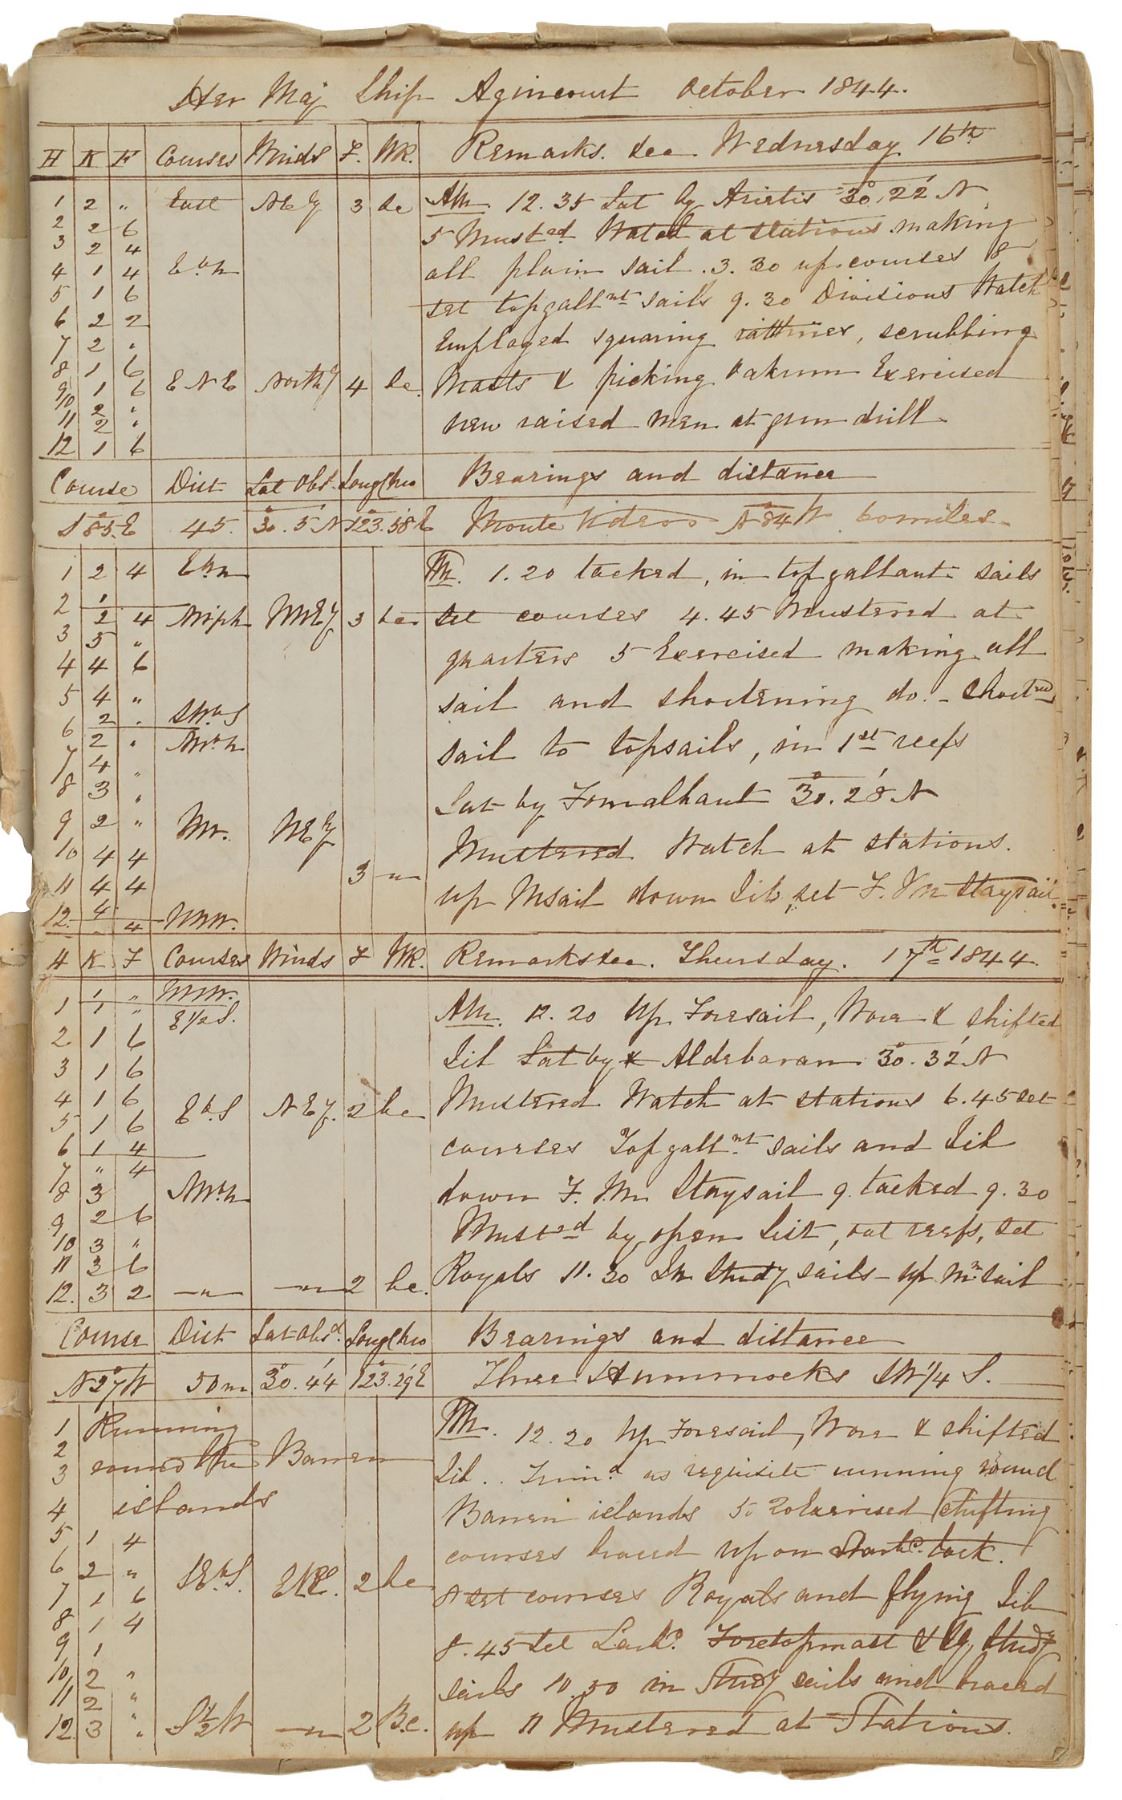 Her Maj Ship Agincourt October 1844.
H K F Courses Winds F. WR. Remarks. &ca Wednesday 16th
1 2 " East NEy 3 bc AM. 12.35 Lat by Arietis 30°.22' N
2 2 6 5 Musted Watch at stations making
3 2 4 all plain sail. 3.30 up courses &
4 1 4 EbN set topgallnt sails 9.30 Divisions Watch
5 1 6 Employed squaring ratlines, scrubbing
6 2 2 Masts & picking oakum Exercised
7 2 " new raised men at gun drill
8 1 6
9 1 6 ENE Northy 4 bc.
10 2 "
11 2 "
12 1 6
Course Dist Lat Obs. Long Chro Bearings and distance
S 85 E 45. 30°.5' N 123.58 E Monte Video N 84 W 60 miles.
1 2 4 EbN PM. 1.20 tacked, in topgallant sails
2 1
2 4 NWbN NNEy 3 bc set courses 4.45 Mustered at
3 5 " quarters 5 Exercised making all
4 4 6 sail and shortening do. - Shortned
5 4 " sail to topsails, in 1st reefs
6 2 " SWbS
2 " NWbN
7 4 " Lat by Fomalhaut 30°.28' N
8 3 " Mustered Watch at stations.
9 2 " NW. NEy up Msail down Jib, set F. Tm Staysail.
10 4 4
11 4 4 3 "
12 4
" 4 NNW.
H K F Courses Winds F WR. Remarks &ca. Thursday. 17th 1844
1 1 " NNW.
1 " E1/2S. AM. 12.20 Up Foresail, Wore & shifted
2 1 6 Jib Lat by * Aldebaran 30°.32' N
3 1 6 Mustered Watch at stations 6.45 set
4 1 6 EbS NEy. 2 bc courses Topgallnt sails and Jib
5 1 6 down F. Tm Staysail 9. tacked 9.30
6 1 4 Musted by open List, out reefs, set
7 " 4 Royals 11.30 In Studg sails - up Mn sail
8 3 NWbN
9 2 6
10 3 "
11 3 6
12. 3 2 " " 2 bc.
Course Dist Lat Obsd. Long Chro Bearings and distance
N 27 W 50 m 30°.44' 123.29 E Three Hummocks SW 1/4 S.
1 Running PM. 12.20 Up Foresail, Wore & shifted
2 round the Barren Jib.. Trimd as requisite running round
3 islands Barren islands 5.20 Exercised shifting
4 courses braced up on Starbd. tack.
5 1 4 8 set courses Royals and flying Jib
6 2 " SEbS. ENE. 2 bc 8.45 Set Larbd. Foretopmast & Lr, Studg
7 1 6 sails 10.50 in Studg sails and braced
8 1 4 up 11 Mustered at Stations.
9 1
10 2 "
11 2 "
12 3 " " 2 B.c.